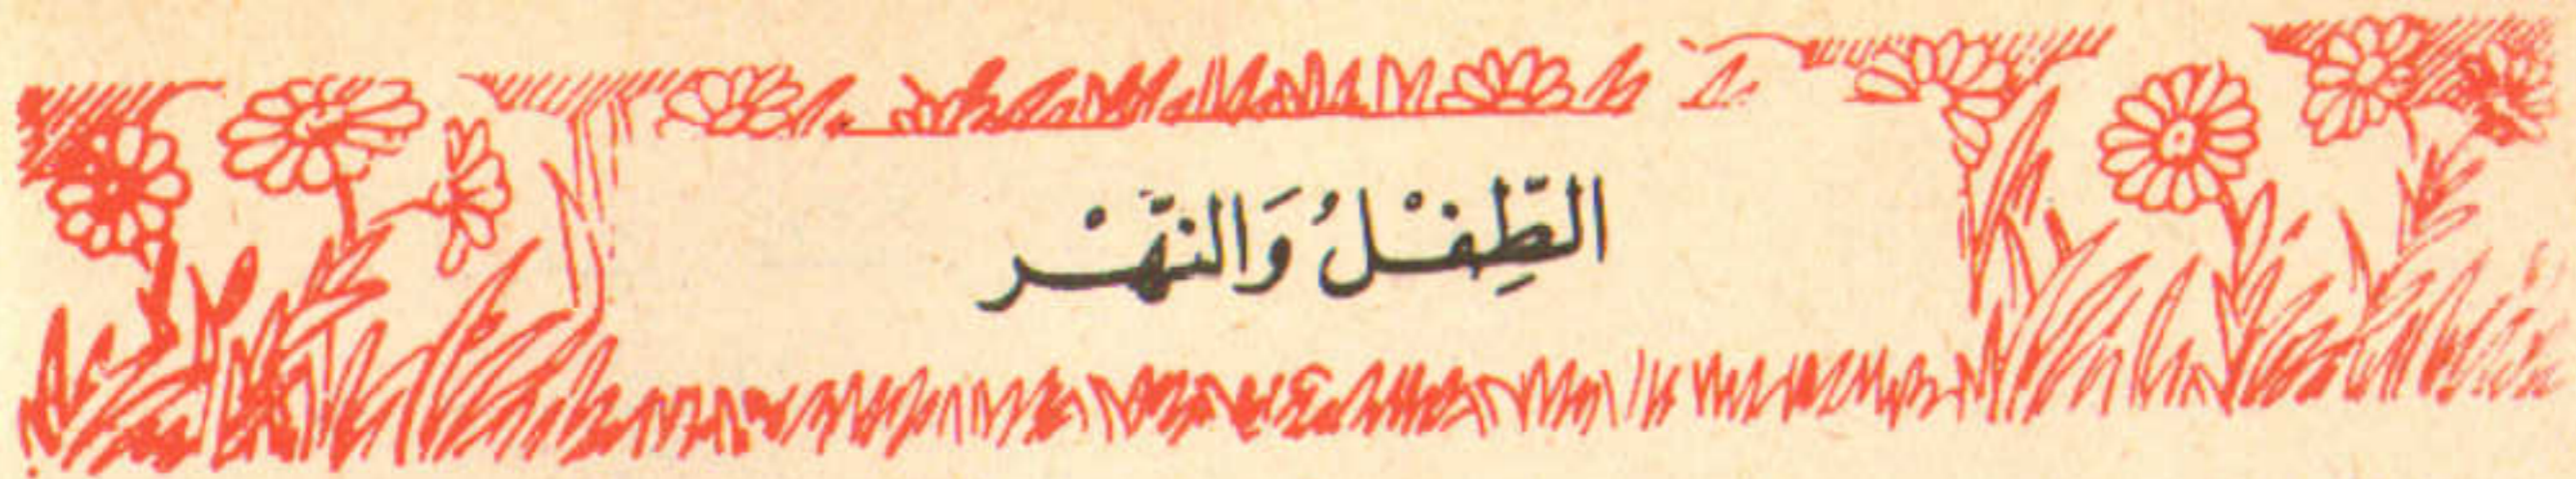 الطِّفْلُ وَالنَّهْر